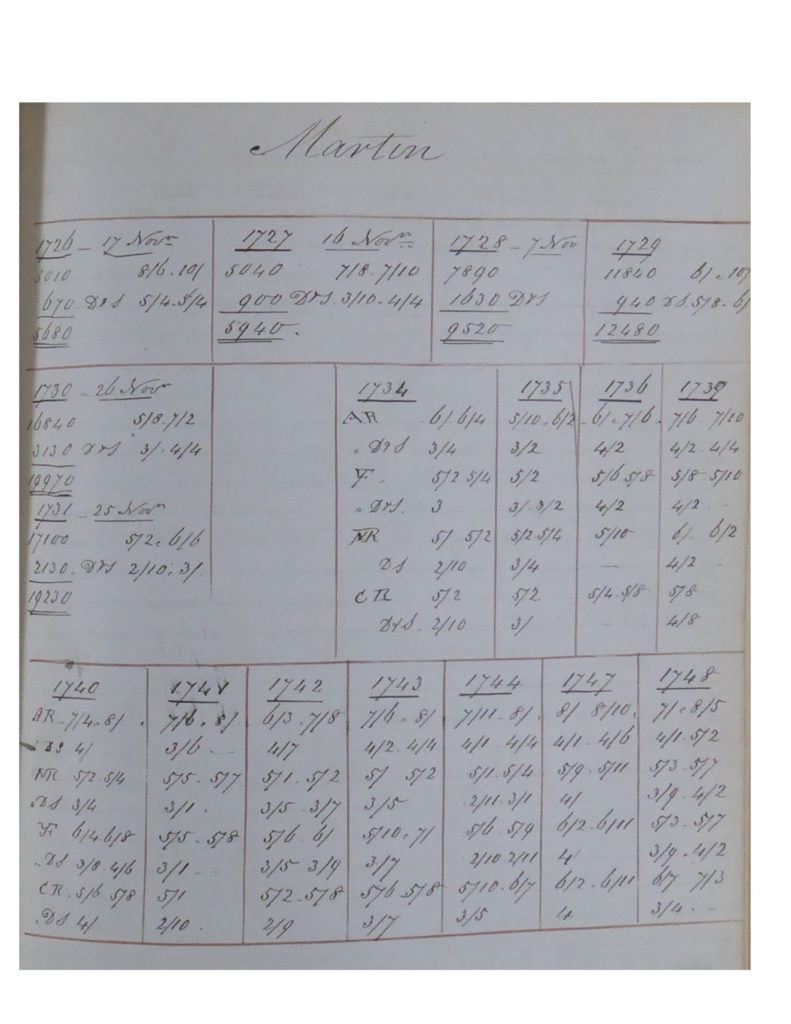 Martin
1726 - 17 Novr 1727 16 Novr 1728 - 7 Nov 1729
5010 8/6.10/ 5040 7/8.7/10 7890 11840 6/.10/
670. Drs 5/4.5/4 900 Drs. 3/10.4/4 1630 Drs 940 Ds 5/8.6/
5680 5940. 9520 12480
1730 - 26 Novr 1734 1735 1736 1739
16840 5/8.7/2 AR 6/. 6/4 5/10.6/2 6/. 7/6 7/6. 7/10
3130 Drs 3/. 4/4 " Drs 3/4 3/2 4/2 4/2. 4/4
19970 F. 5/2.5/4 5/2 5/6.5/8 5/8.5/10
1731 - 25 Novr " Drs. 3 3/.3/2 4/2 4/2 - -
17100 5/2.6/6 NR 5/ 5/2 5/2.5/4 5/10 6/. 6/2
2130. Drs 2/10.3/. DS 2/10 3/4 - 4/2 -
19230 CR 5/2 5/2 5/4.5/8 5/8
Drs. 2/10 3/ 4/8
1740 1741 1742 1743 1744 1747 1748
AR - 7/4.8/. 7/6.8/ 6/3.7/8 7/6.8/ 7/11.8/. 8/. 8/10. 7/.8/5
DS 4/ 3/6 - - 4/7 4/2.4/4 4/1 4/4 4/1.4/6 4/1.5/2
NR 5/2 5/4 5/5 - 5/7 5/1.5/2 5/ 5/2 5/1.5/4 5/9.5/11 5/3.5/7
DS 3/4 3/1. 3/5.3/7 3/5 2/11.3/1 4/ 3/9.4/2
F. 6/4.6/8 5/5 - 5/8 5/6.6/ 5/10.7/ 5/6.5/9 6/2.6/11 5/3.5/7
"DS 3/8.4/6 3/1 - - 3/5 3/9 3/7 2/10 2/11 4 3/9.4/2
CR. 5/6 5/8 5/1 5/2.5/8 5/6 5/8 5/10.6/7 6/2.6/11 6/7 7/3
DS 4/ 2/10. 2/9 3/7 3/5 4 3/4. -